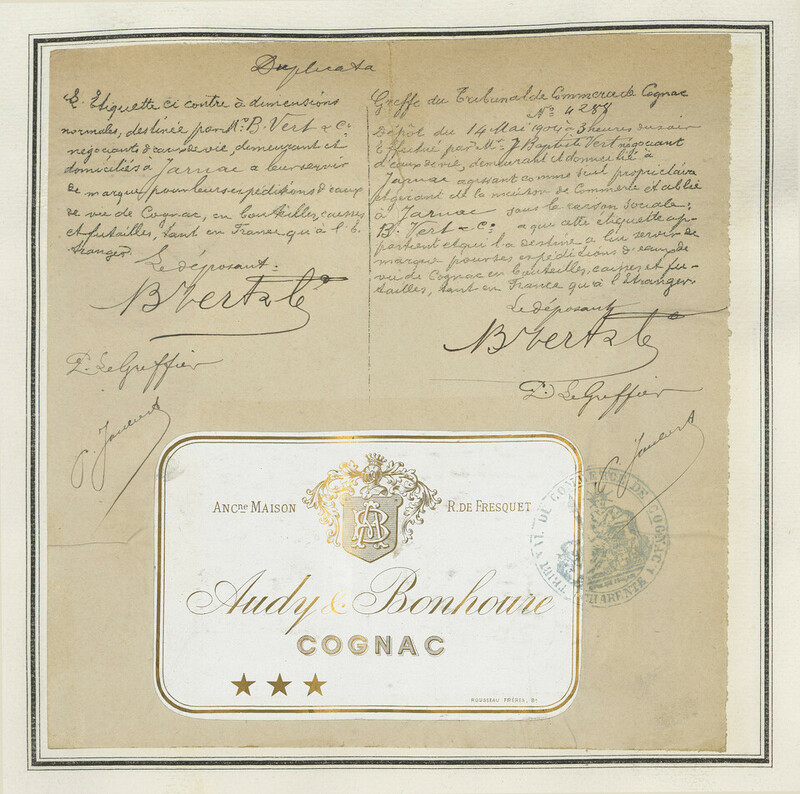 Duplicata
L'Etiquette ci contre à dimensions
normales, destinée par Mr. B. Vert & Cie.
négociants d'eaux de vie, demeurant et
domiciliés à Jarnac a leur servir
de marque pour leurs expéditions d'eaux
de vie de Cognac, en bouteilles, caisses
et futailles, tant en France qu'à l'é-
tranger.
Le déposant:
B Vert & Cie
P. Le Greffier
Greffe du Tribunal de Commerce de Cognac
No 4288
Dépôt du 14 Mai 1904 à 3 heures du soir
Effectué par Mr. J Baptiste Vert négociant
d'eaux de vie, demeurant et domicilié à
Jarnac agissant comme seul propriétaire
et gérant de la maison de Commerce établie
à Jarnac sous la raison sociale:
B. Vert & Co. a que cette étiquette ap-
partient et qui l'a destiné à lui servir de
marque pour ses expéditions d'eaux de
vie de Cognac en bouteilles, caisses et fu-
tailles, tant en France qu'à l'Etranger.
Le déposant
B Vert & Cie
P. Le Greffier
ANCNE MAISON R. DE FRESQUET
AB
Audy & Bonhoure
COGNAC
ROUSSEAU FRÈRES, BX
TRIBUNAL DE COMMERCE DE COGNAC
CHARENTE